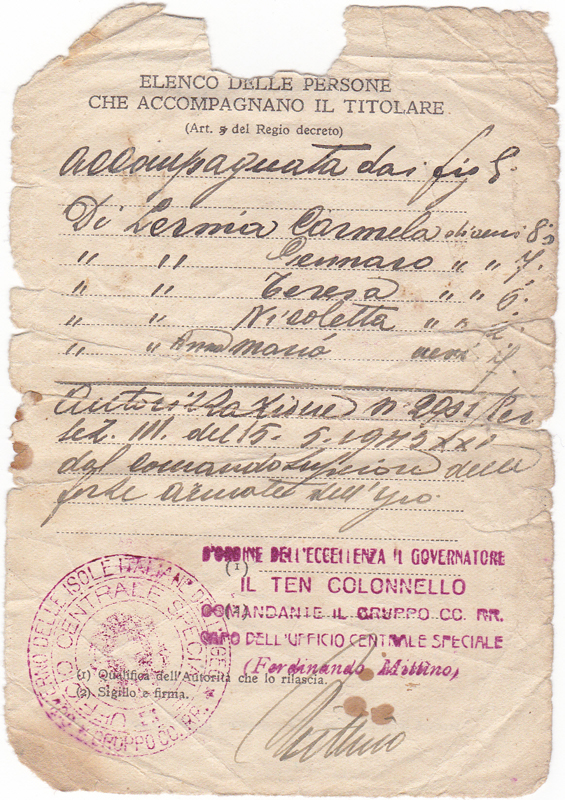 ELENCO DELLE PERSONE
CHE ACCOMPAGNANO IL TITOLARE
(Art. 5 del Regio decreto)
accompagnata dai figli
Di Lernia Carmela di anni 8
" " Gennaro " " 7.
" " Teresa " " 6.
" " Nicoletta " "
" " Anna Maria anni
Autorizzazione n. 2901/Per
sez. III. del 15. 5. 1943 XXI
dal Comando Superiore delle
forze armate dell'
D'ORDINE DELL'ECCELLENZA IL GOVERNATORE
(1)
IL TEN COLONNELLO
COMANDANTE IL GRUPPO CC. RR.
CAPO DELL'UFFICIO CENTRALE SPECIALE
(Ferdinando Mittino)
(1) Qualifica dell'Autorità che lo rilascia.
(2) Sigillo e firma.
Mittino
GOVERNO DELLE ISOLE ITALIANE DELL'EGEO
UFFICIO CENTRALE SPECIALE
GRUPPO CC. RR.